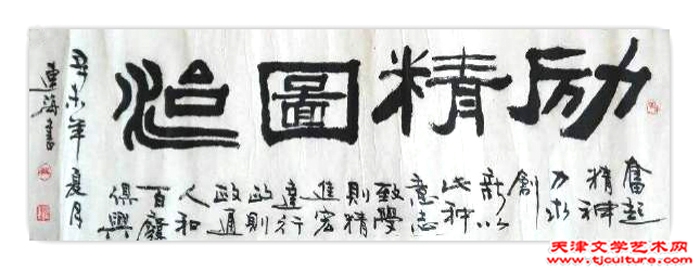 励精圖治
奮起
精神
力求
創
新以
此种
意志
致學
則精
進宏
達行
政則
政通
人和
百廢
俱興
辛未年夏月
連海書
天津文学艺术网
www.tjculture.com